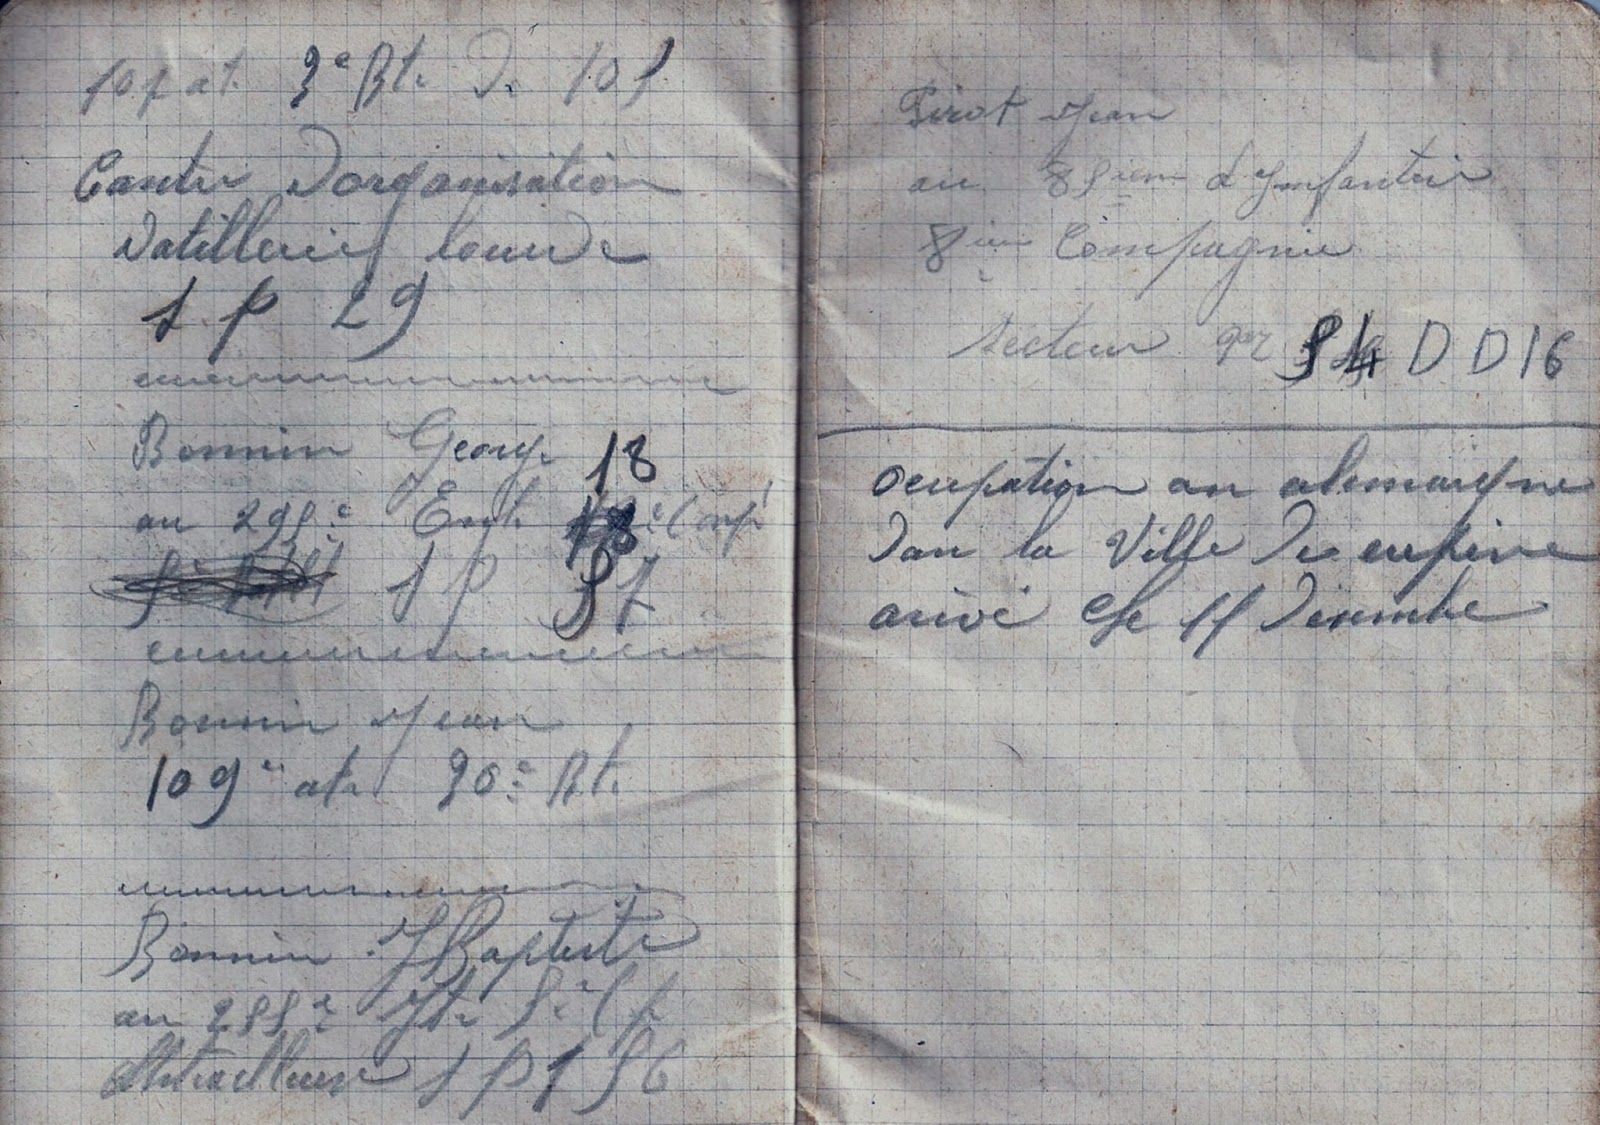 107 at. 9e Bt. De 105
Cantre Dorganisation
Datillerie lourde
s p 29
Bonnin George 18
au 295e Enf. e Comp
s p 57
Bonnin Jean
109e at. 90e Bt.
Bonnin J Baptiste
au 285e If. 5e Cp
Mitrailleuse s p 156
Pirot Jean
au 85iem d Ymfanterie
8iem Compagnie
secteur 54 D D 16
ocupation an alemaigne
Dan la Ville De
arivé Le 11 Desembre